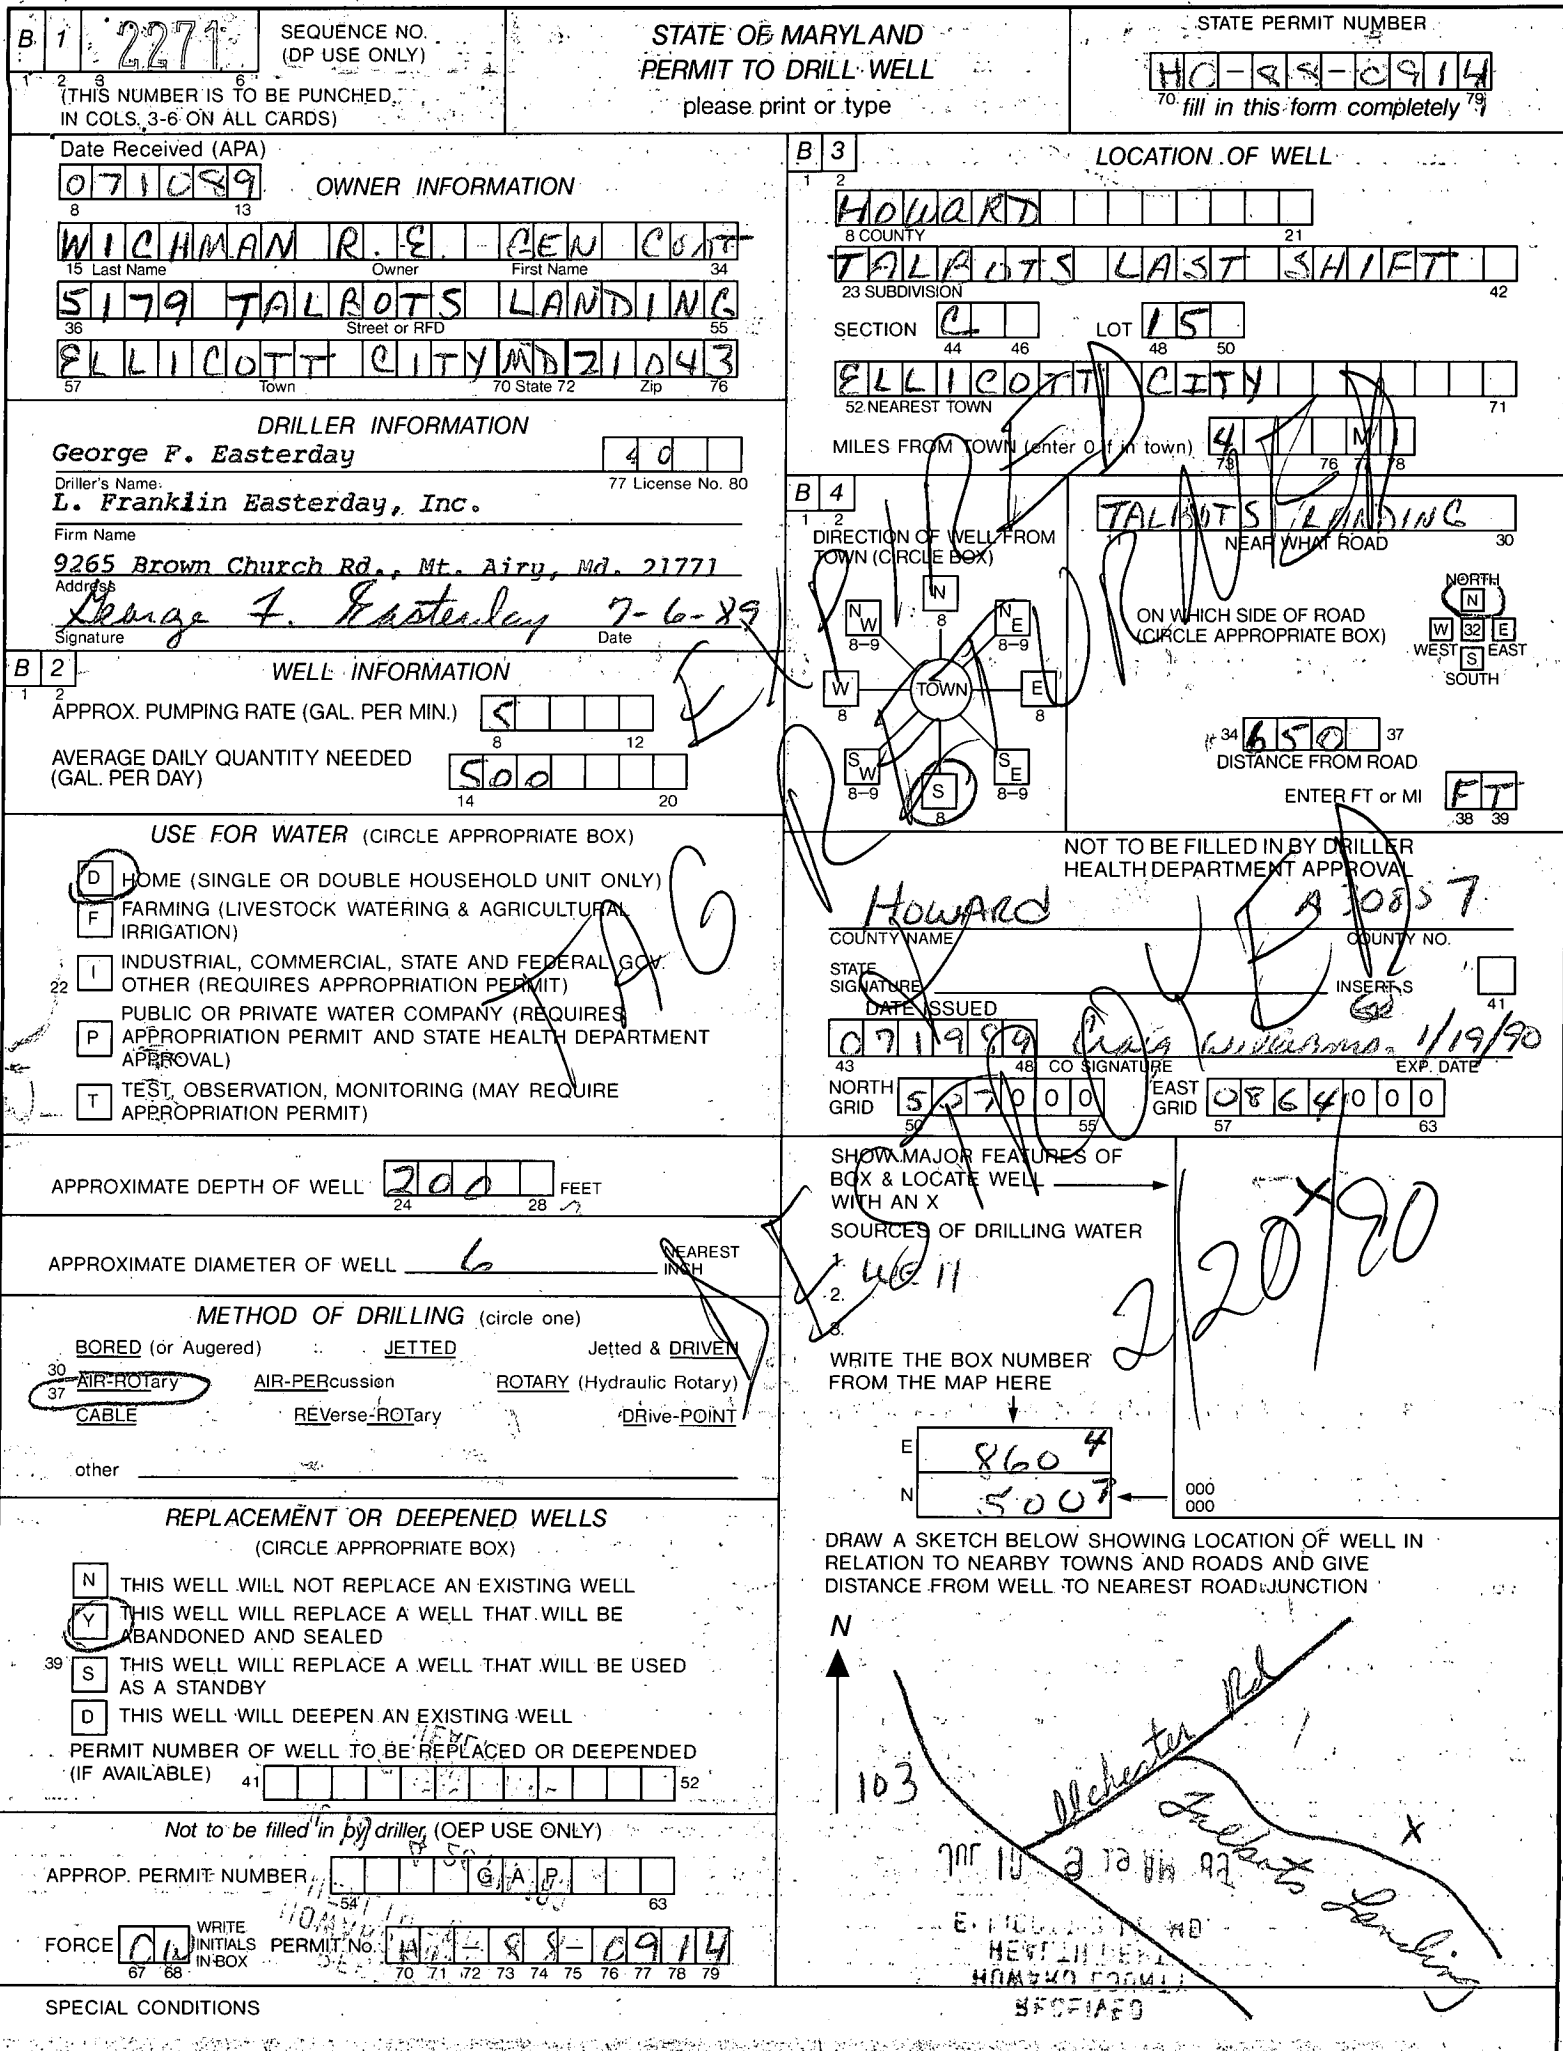 B 1 2271 SEQUENCE NO. (DP USE ONLY)
1 2 3 6
(THIS NUMBER IS TO BE PUNCHED IN COLS. 3-6 ON ALL CARDS)
STATE OF MARYLAND
PERMIT TO DRILL WELL
please print or type
STATE PERMIT NUMBER
HO-88-0914
70 fill in this form completely 79
Date Received (APA)
071089
8 13
OWNER INFORMATION
WICHMAN R. E. GEN CONT
15 Last Name Owner First Name 34
5179 TALBOTS LANDING
36 Street or RFD 55
ELLICOTT CITY MD 21043
57 Town 70 State 72 Zip 76
DRILLER INFORMATION
George F. Easterday 40
Driller's Name 77 License No. 80
L. Franklin Easterday, Inc.
Firm Name
9265 Brown Church Rd., Mt. Airy, Md. 21771
Address
George F. Easterday 7-6-89
Signature Date
B 2 WELL INFORMATION
1 2
APPROX. PUMPING RATE (GAL. PER MIN.) 5
8 12
AVERAGE DAILY QUANTITY NEEDED (GAL. PER DAY) 500
14 20
USE FOR WATER (CIRCLE APPROPRIATE BOX)
D HOME (SINGLE OR DOUBLE HOUSEHOLD UNIT ONLY)
F FARMING (LIVESTOCK WATERING & AGRICULTURAL IRRIGATION)
22 I INDUSTRIAL, COMMERCIAL, STATE AND FEDERAL GOV. OTHER (REQUIRES APPROPRIATION PERMIT)
P PUBLIC OR PRIVATE WATER COMPANY (REQUIRES APPROPRIATION PERMIT AND STATE HEALTH DEPARTMENT APPROVAL)
T TEST, OBSERVATION, MONITORING (MAY REQUIRE APPROPRIATION PERMIT)
APPROXIMATE DEPTH OF WELL 200 FEET
24 28
APPROXIMATE DIAMETER OF WELL 6 NEAREST INCH
METHOD OF DRILLING (circle one)
BORED (or Augered) JETTED Jetted & DRIVEN
30 37 AIR-ROTary AIR-PERcussion ROTARY (Hydraulic Rotary)
CABLE REVerse-ROTary DRive-POINT
other
REPLACEMENT OR DEEPENED WELLS
(CIRCLE APPROPRIATE BOX)
N THIS WELL WILL NOT REPLACE AN EXISTING WELL
Y THIS WELL WILL REPLACE A WELL THAT WILL BE ABANDONED AND SEALED
39 S THIS WELL WILL REPLACE A WELL THAT WILL BE USED AS A STANDBY
D THIS WELL WILL DEEPEN AN EXISTING WELL
PERMIT NUMBER OF WELL TO BE REPLACED OR DEEPENDED (IF AVAILABLE) 41 52
Not to be filled in by driller (OEP USE ONLY)
APPROP. PERMIT NUMBER GAP
54 63
FORCE CW WRITE INITIALS IN BOX PERMIT No. HO-88-0914
67 68 70 71 72 73 74 75 76 77 78 79
SPECIAL CONDITIONS
B 3 LOCATION OF WELL
1 2
HOWARD
8 COUNTY 21
TALBOTS LAST SHIFT
23 SUBDIVISION 42
SECTION C LOT 15
44 46 48 50
ELLICOTT CITY
52 NEAREST TOWN 71
MILES FROM TOWN (enter 0 if in town) 4 M
73 76 77 78
B 4
1 2
DIRECTION OF WELL FROM TOWN (CIRCLE BOX)
N 8
NW 8-9 NE 8-9
W 8 TOWN E 8
SW 8-9 SE 8-9
S 8
TALBOTS LANDING
NEAR WHAT ROAD 30
ON WHICH SIDE OF ROAD (CIRCLE APPROPRIATE BOX)
NORTH N
W 32 E
WEST EAST
S
SOUTH
34 650 37
DISTANCE FROM ROAD
ENTER FT or MI FT
38 39
NOT TO BE FILLED IN BY DRILLER
HEALTH DEPARTMENT APPROVAL
HOWARD A 30857
COUNTY NAME COUNTY NO.
STATE SIGNATURE INSERT S
41
DATE ISSUED
071989 Craig Williams 1/19/90
43 48 CO SIGNATURE EXP. DATE
NORTH GRID 507000 EAST GRID 0864000
50 55 57 63
SHOW MAJOR FEATURES OF BOX & LOCATE WELL WITH AN X
X
SOURCES OF DRILLING WATER
1. Well
2.
3.
WRITE THE BOX NUMBER FROM THE MAP HERE
E 860 4
N 500 7
000
000
EXPIRED
RETURNED
TAG
2/20/90
DRAW A SKETCH BELOW SHOWING LOCATION OF WELL IN RELATION TO NEARBY TOWNS AND ROADS AND GIVE DISTANCE FROM WELL TO NEAREST ROAD JUNCTION
N
103
Ilchester Rd
Talbots Landing
X
RECEIVED
HOWARD COUNTY
HEALTH DEPT